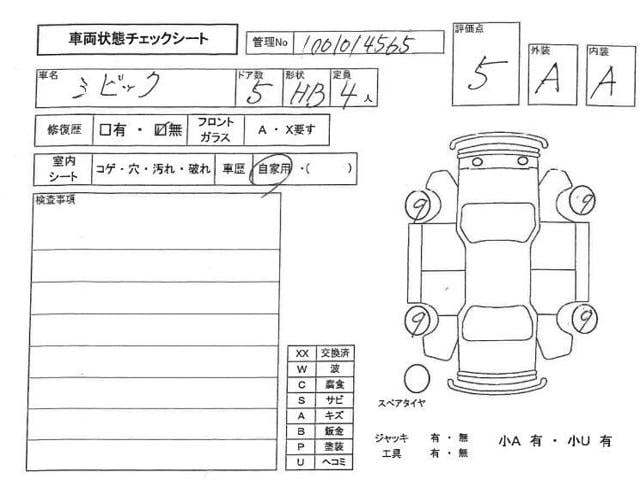 車両状態チェックシート
管理No 1001014565
評価点 5
外装 A
内装 A
車名 シビック
ドア数 5
形状 HB
定員 4人
修復歴 □有・☑無
フロントガラス A・X要す
室内シート コゲ・穴・汚れ・破れ
車歴 自家用・( )
検査事項
9 9
9 9
XX 交換済
W 波
C 腐食
S サビ
A キズ
B 鈑金
P 塗装
U ヘコミ
スペアタイヤ
ジャッキ 有・無
工具 有・無
小A 有・小U 有